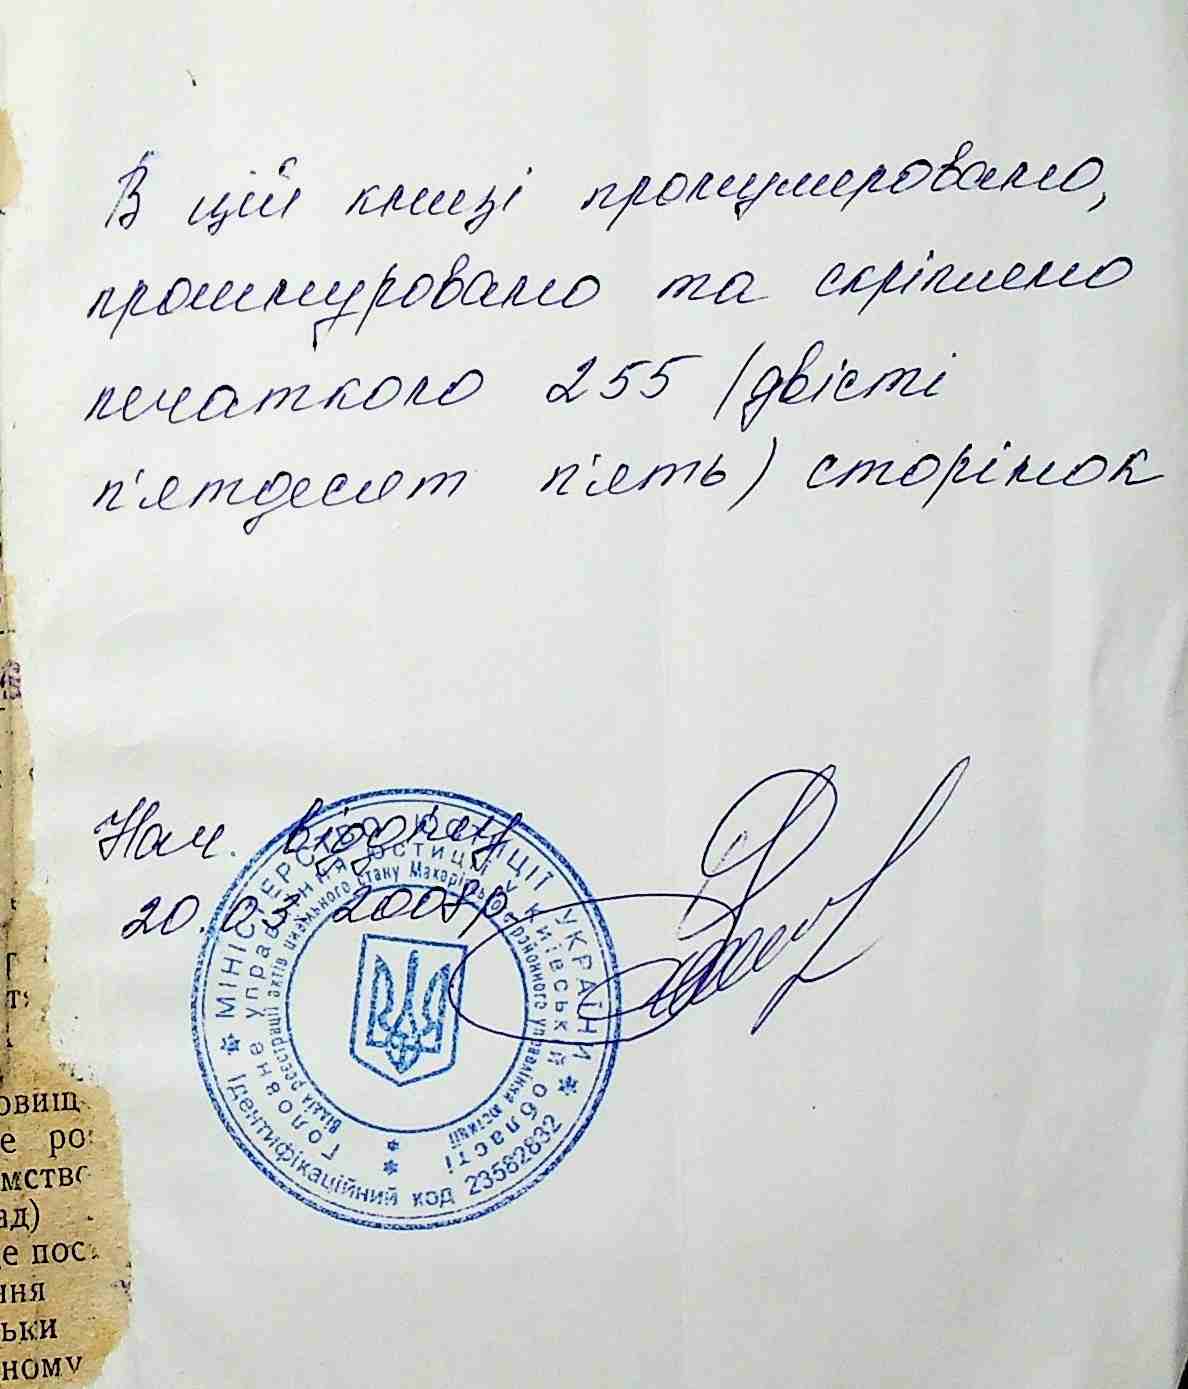 В цій книзі пронумеровано,
прошнуровано та скріплено
печаткою 255 (двісті
п'ятдесят п'ять) сторінок
Нач. відділу
20.03.2008р
* МІНІСТЕРСТВО ЮСТИЦІЇ УКРАЇНИ *
Ідентифікаційний код 23582832
Головне управління юстиції у Київській області
Відділ реєстрації актів цивільного стану Макарівського районного управління юстиції
* *
овищ
е ро
мство
ад)
е пос
ння
ьки
ному